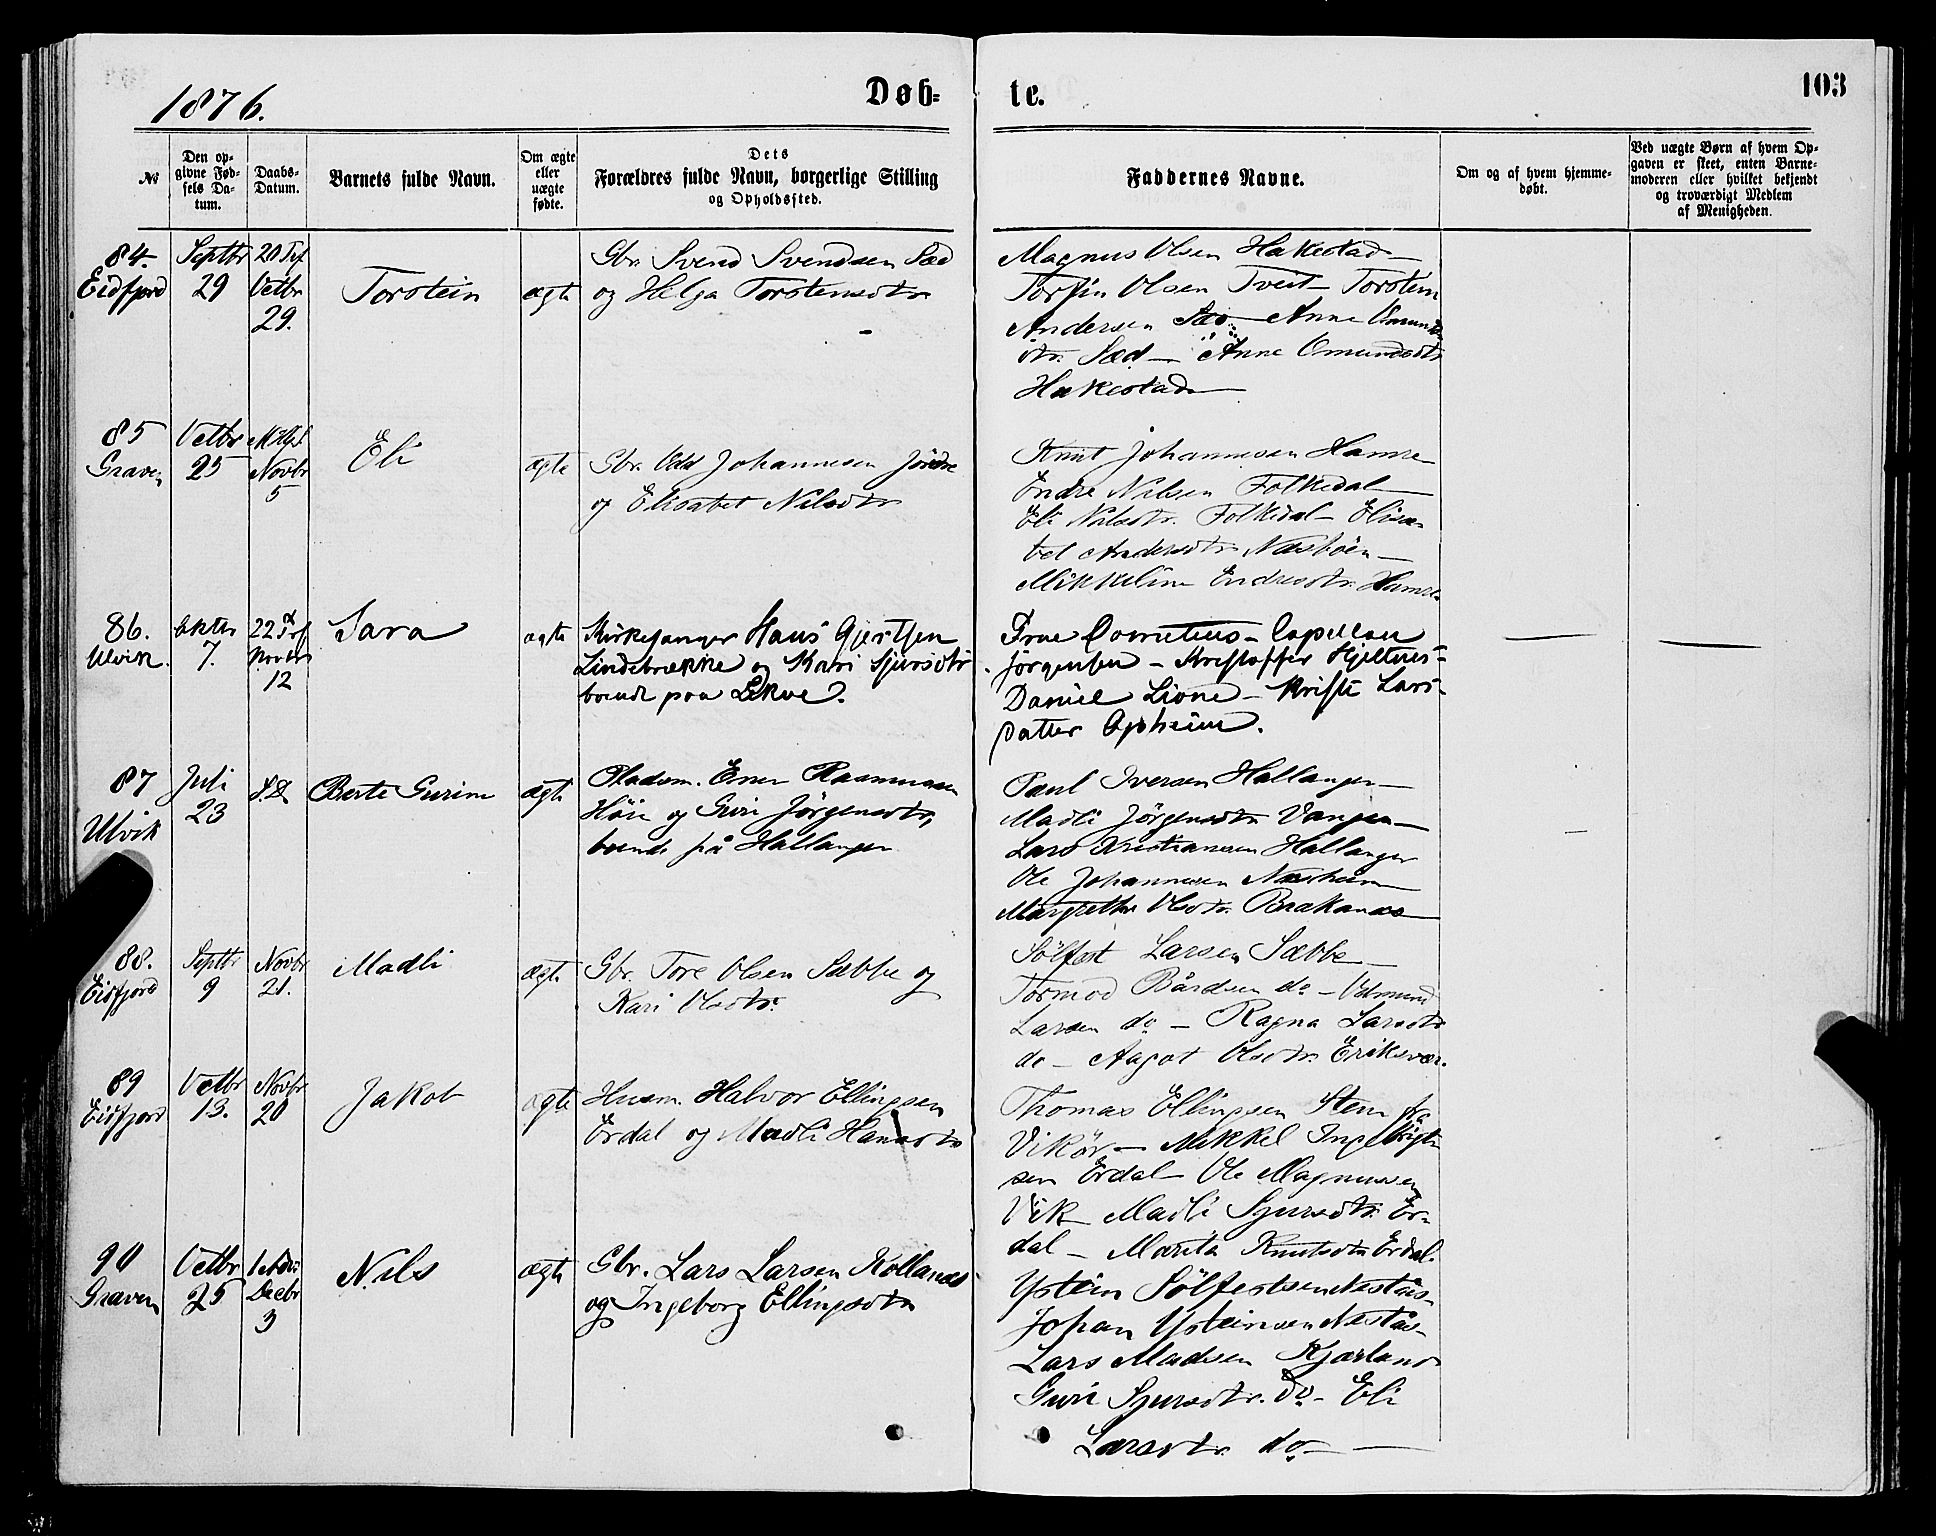 1876.
Døb-
te.
103
№
Den op-
givne Fød-
sels Da-
tum.
Daabs-
Datum.
Barnets fulde Navn.
Om ægte
eller
uægte
fødte.
Dets
Forældres fulde Navn, borgerlige Stilling
og Opholdssted.
Faddernes Navne.
Om og af hvem hjemme-
døbt.
Ved uægte Børn af hvem Op-
gaven er skeet, enten Barne-
moderen eller hvilket bekjendt
og troværdigt Medlem
af Menigheden.
84.
Eidfjord
Septbr
29
20
29.
Torstein
ægte
Gbr. Svend Svendsen Sæd
og Helga Torstensdtr
Magnus Olsen Hakestad
Torfin Olsen Tveit Torstein
Andersen Anne
dtr. Sæd – Anne Omundsdtr
Hakestad
85
Graven
25
Novbr
5
Eli
ægte
Gbr. Odd Johannesen Jördre
og Elisabet Nilsdtr
Knut Johannesen Hamre
Endre Nilsen Folkedal
Eli Nilsdtr. Folkedal – Elisa-
bet Andersdtr
Mikkeline Endresdtr. Hamre
86.
Ulvik.
Oktbr
7.
22
Novbr
12
Sara
ægte
Kirkesanger Hans Gjertsen
Lindebrække og Kari Sjursdtr
boende paa Lekve.
Frue Cornelius – Capellan
Jørgensen – Kristoffer Hjeltnes –
Daniel Lione – Kristi Lars-
datter Opheim.
87
Ulvik
Juli
23
Berte Gurine
ægte
Pladsm. Rasmussen
Höie og Guri Jörgensdtr,
boende på Hallanger
Paul Iversen Hallanger –
Madli Jörgensdtr Vangen –
Lars Kristiansen Hallanger
Ole Johannesen Næsheim
Margrethe Olsdtr. Brakanæs
88.
Eidfjord
Septbr
9
Novbr
21.
Madli
ægte
Gbr. Tore Olsen Sæbbe og
Kari Olsdtr.
Sölfest Larsen Sæbbe –
Tormod Bårdsen do – Odmund
Larsen do – Ragna Larsdtr
do – Aagot Olsdtr.
89
Eidfjord
13.
Novbr
20
Jakob
ægte
Husm. Halvor Ellingsen
Erdal og Madli Hansdtr
Thomas Ellingsen Stene fra
Vikör – Mikkel Ingebrigt-
sen Erdal – Ole Magnussen
Vik Madli Sjursdtr. Er-
dal – Marita Knutsdtr Erdal.
90
Graven
25
Decbr
3
Nils
ægte
Gbr. Lars Larsen Kollanes
og Ingeborg Ellingsdtr
Ystein Sölfestsen Nestås –
Johan Ysteinsen Nestås –
Lars Madsen Kjærland
Guri Sjursdtr. do – Eli
Larsdtr do –